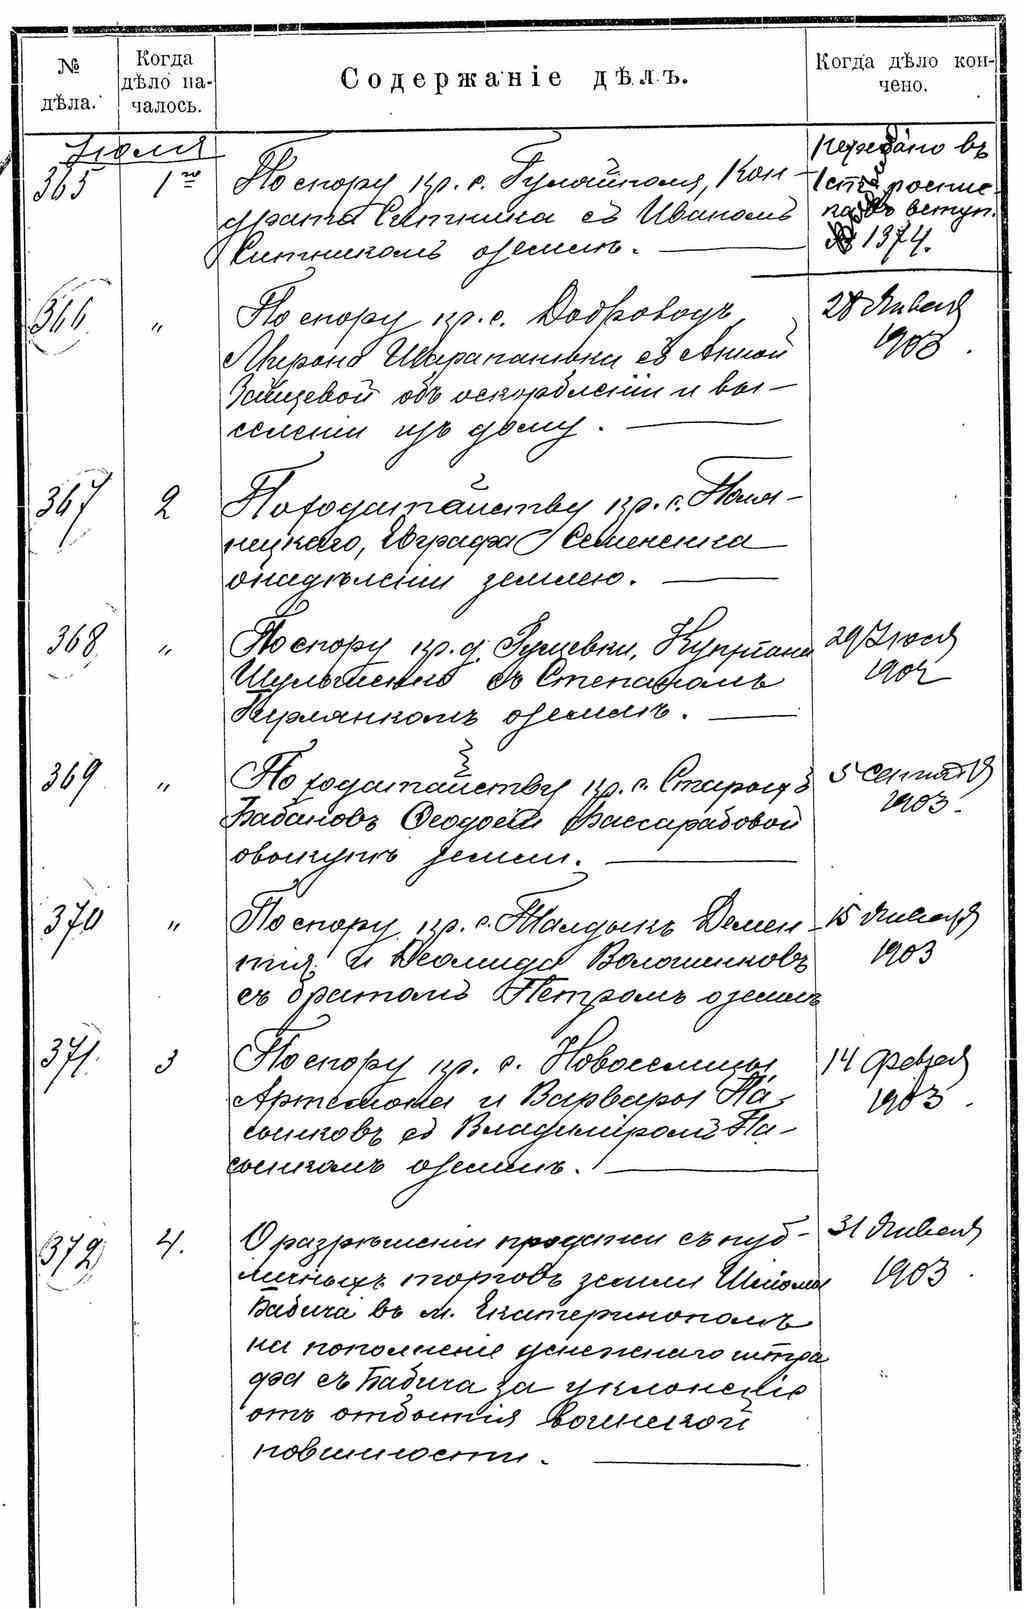 № дѣла.
Когда дѣло на-
чалось.
Содержаніе дѣлъ.
Когда дѣло кон-
чено.
Іюля
365 1го По спору кр. с. Гулайполя, Кон-
драта Ситника съ Иваномъ
Ситникомъ о землѣ.
Передано въ
1374.
366 " По спору кр. с. Доброводъ
Мирона Шарапанюка съ Анной
Зайцевой объ оскорбленіи и вы-
селеніи изъ дому.
28 Января
1903.
367 2 По ходатайству кр. с. Поля-
нецкаго, Евграфа Семененка
о надѣленіи землею.
368 " По спору кр. д. Гулевки, Купріана
Шульженко съ Степаномъ
о землѣ.
29 Іюля
1902
369 " По ходатайству кр. с. Старыхъ
Бабановъ Ѳеодосіи Бассарабовой
о выкупѣ земли.
5 сентября
1903.
370 " По спору кр. с. Талдыкъ Демен-
тія и Деомида Волошенковъ
съ братомъ Петромъ о землѣ
15 Января
1903
371. 3 По спору кр. с. Новоселицы
Артемона и Варвары Па-
сѣчниковъ съ Владиміромъ Па-
сѣчникомъ о землѣ.
14 февраля
1903.
372 4. О разрѣшеніи продажи съ пуб-
личныхъ торговъ земли Шліомы
Бабича въ м. Екатеринополѣ
на пополненіе денежнаго штра
фа съ Бабича за уклоненіе
отъ отбытія воинской
повинности.
31 Января
1903.